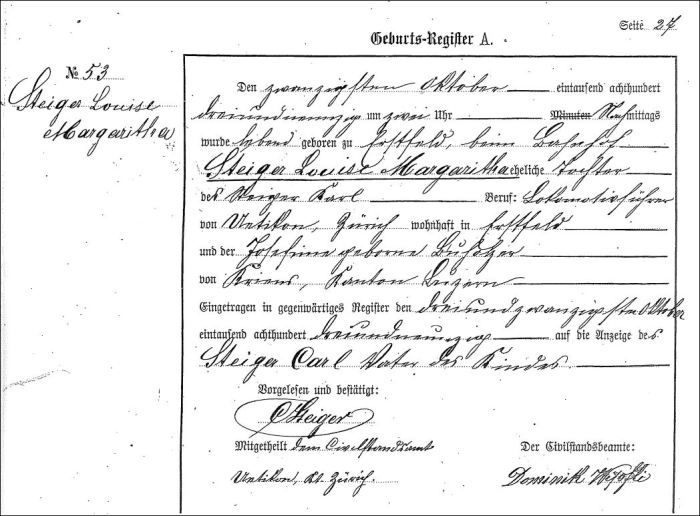 Seite 27
Geburts-Register A.
№ 53
Steiger Louise
Margaritha
Den zwanzigsten Oktober eintausend achthundert
dreiundneunzig um zwei Uhr Minuten Nachmittags
wurde lebend geboren zu Erstfeld, beim Bahnhof
Steiger Louise Margaritha eheliche Tochter
des Steiger Karl Beruf: Lokomotivführer
von Uetikon, Zürich wohnhaft in Erstfeld
und der Josefine geborne
von Kriens, Kanton Luzern
Eingetragen in gegenwärtiges Register den dreiundzwanzigsten Oktober
eintausend achthundert dreiundneunzig auf die Anzeige des
Steiger Carl Vater des Kindes.
Vorgelesen und bestätigt:
C Steiger
Mitgetheilt dem Civilstandsamt
Der Civilstandsbeamte:
Uetikon, Kt. Zürich.
Dominik